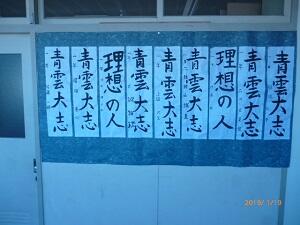 青雲大志
青雲大志
理想の人
青雲大志
青雲大志
青雲大志
理想の人
青雲大志
青雲大志
2019/ 1/19